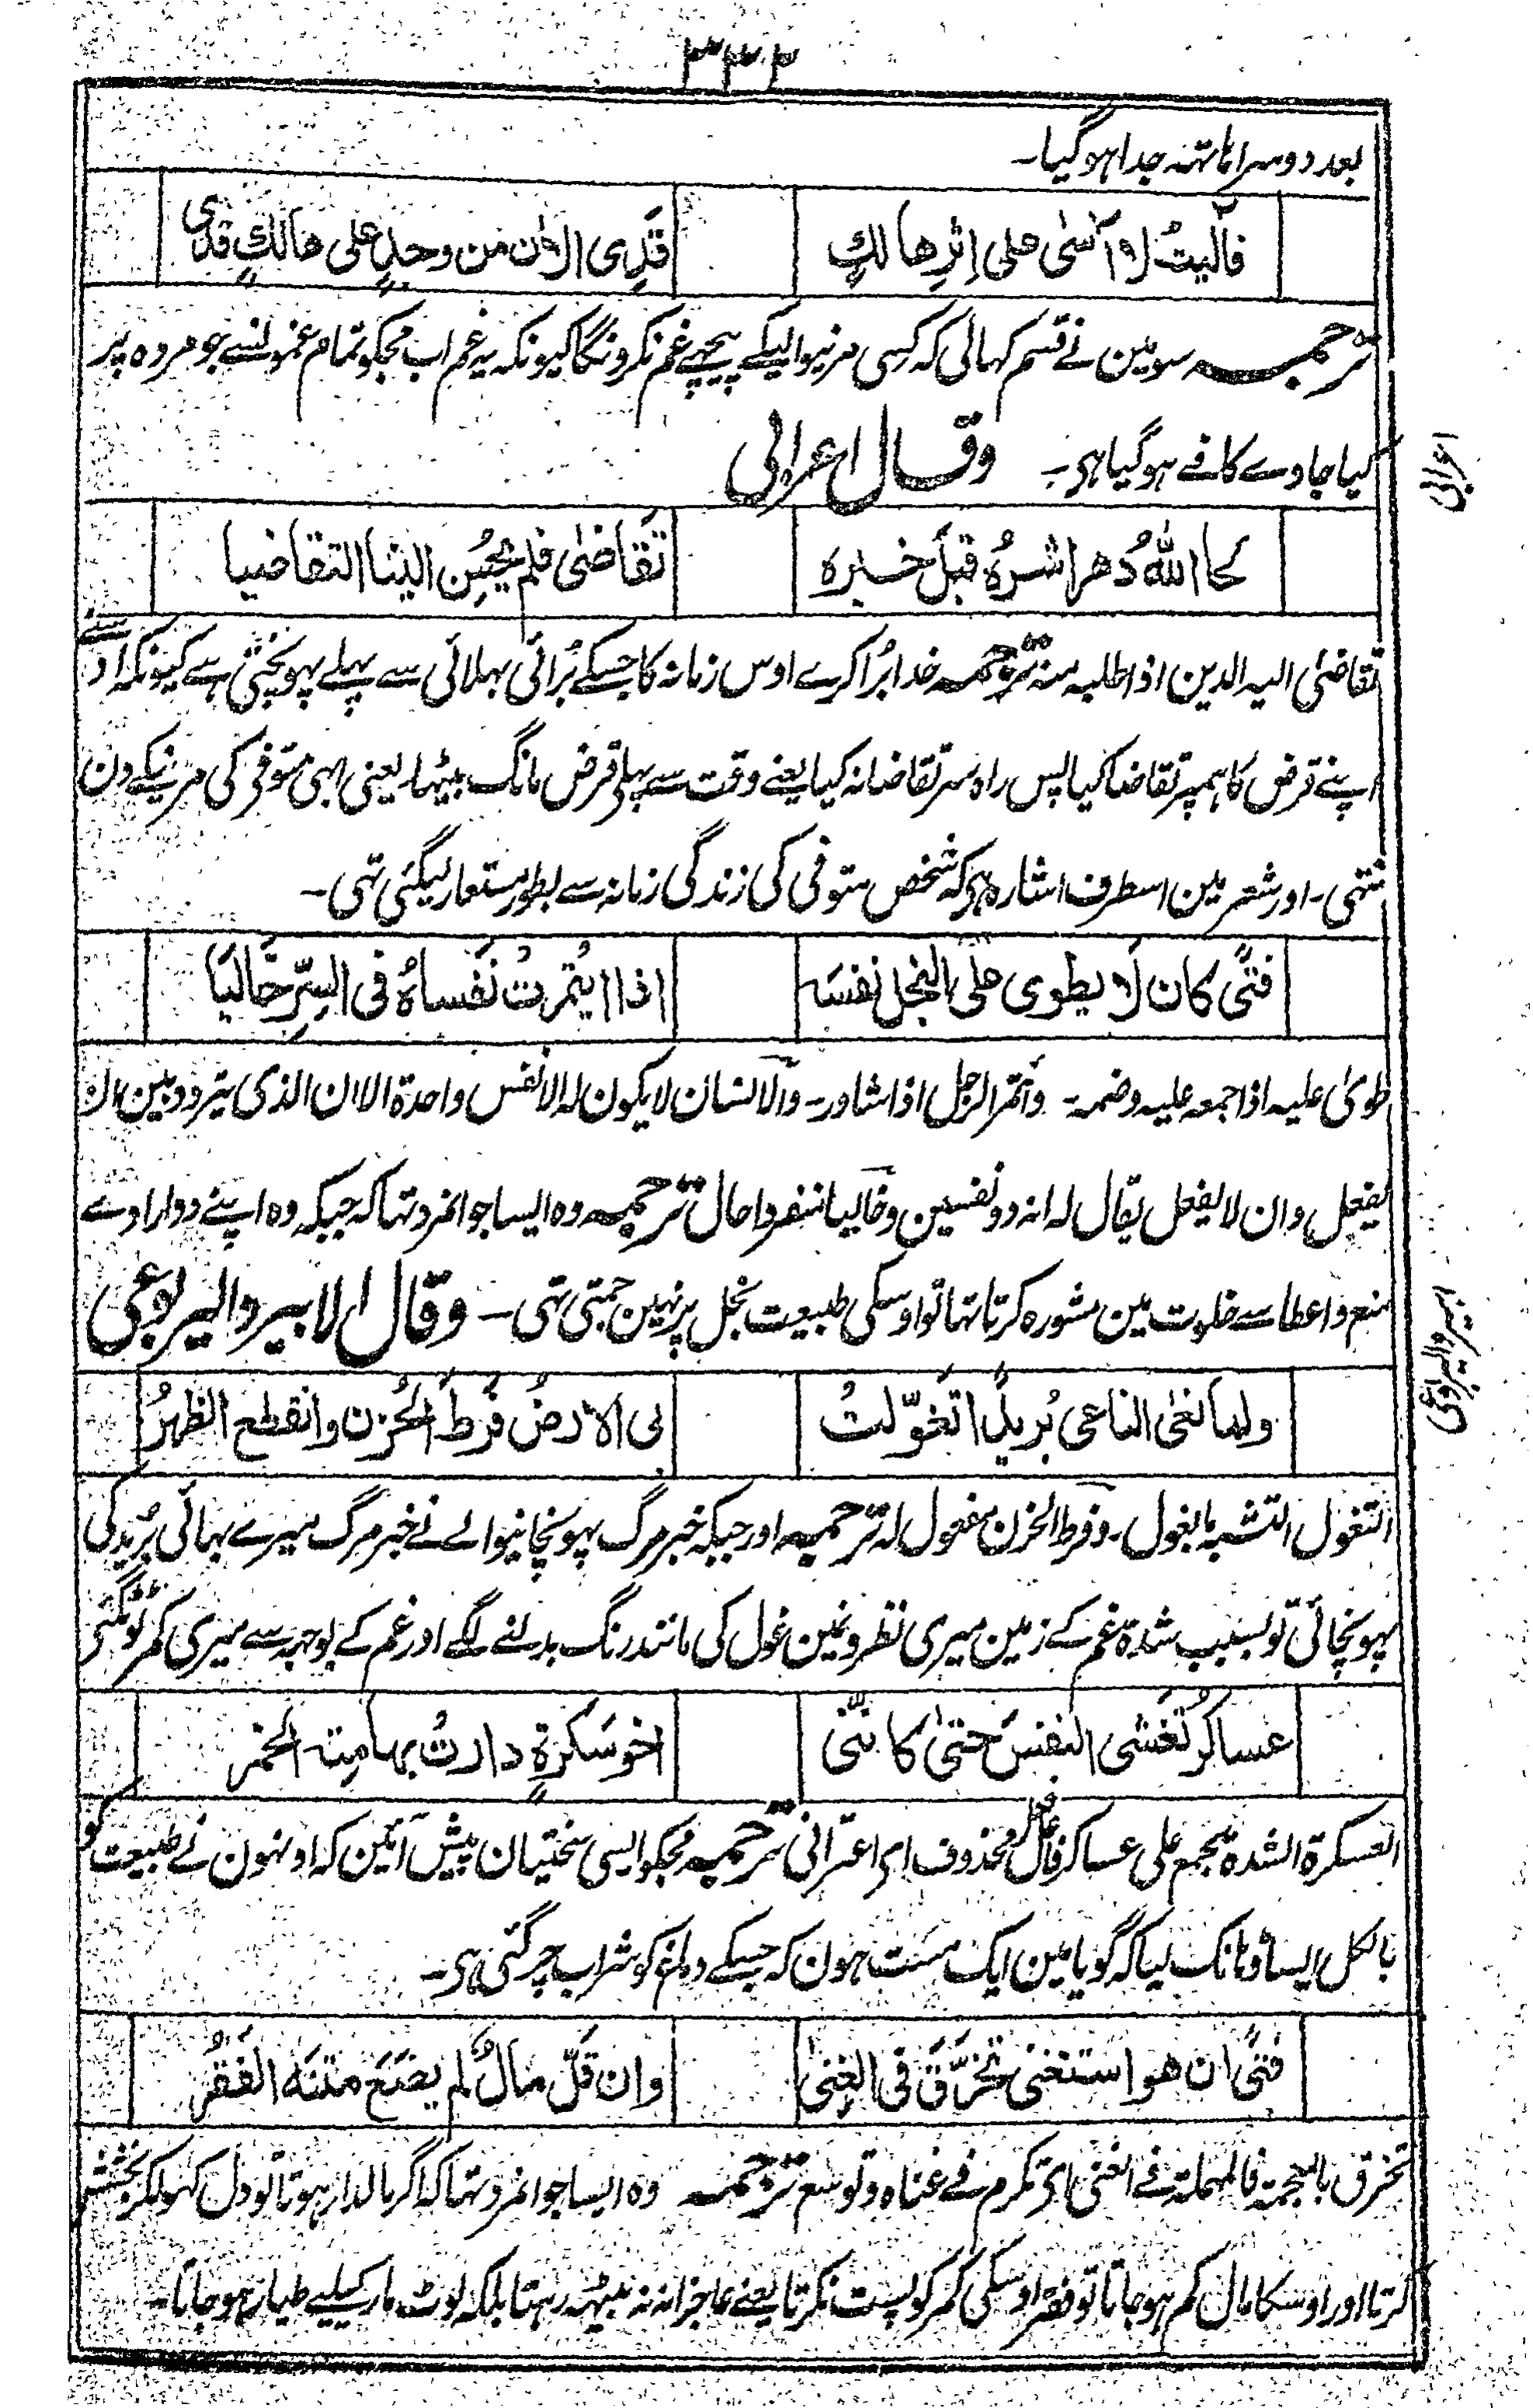 ۳۳۳
بعد دوسرا ہاتہہ جدا ہوگیا۔
فآلیتُ لا آسیٰ علی اِثرِ ھالكٍ قَدِی الاٰن من وجدٍ علی ھالكٍ قَدِی
ترجمہ سو مین نے قسم کہالی کہ کسی مرنیوالیکے پیچہے غم نکرونگا کیونکہ یہ غم اب مجکو تمام غمونسے جو مردہ پر
کیا جاوے کافے ہوگیا ہی۔ وقال اعرابی
اعرابی
لحا اللهُ دَھرا شرُہٗ قبلَ خیرہ تَقَاضیٰ فلم یُحسِن الینا التقاضیا
تقاضیٰ الیہ الدین اذا طلبہ منہ ترجمہ خدا بُرا کرے اوس زمانہ کا جسکے بُرائی بہلائی سے پہلے پہونچتی ہے کیونکہ اوسنے
اپنے قرض کا ہمپر تقاضا کیا پس راہ سر تقاضا نہ کیا یعنے وقت سے پہلے قرض مانگ بیٹہا۔ یعنی ابہی متوفی کی مرنیکے دن
نتہی۔ اور شعر مین اسطرف اشارہ ہی کہ شخص متوفی کی زندگی زمانہ سے بطور مستعار لیگئی تہی۔
فتًی کان لا یطوی علی البخل نفسَہ اذا ایتُمرتْ نَفساہُ فی السِرّ خَالیَا
طویٰ علیہ اذا جمعہ علیہ وضمہ۔ وأتمر الرجل اذا شاور۔ والانسان لا یکون لہ الا نفس واحدة الا ان الذی یتردد بین ان
یفعل وان لا یفعل یقال لہ انہ ذو نفسین وخالیا منفردا حال ترجمہ وہ ایسا جوانمرد تہا کہ جبکہ وہ اپنے دو ارادے
منع واعطا سے خلوت مین مشورہ کرتا تہا تو اوسکی طبیعت بخل پر نہین جمتی تہی۔ وقال الابیرد الیربوعی
ابیرد الیربوعی
ولما نعیٰ الناعی بُریدًا تَغوّلتْ بی الارضُ فَرطَ الحُزن وانقطع الظهرُ
التغول التشبہ بالغول۔ وفرط الحزن مفعول لہ ترجمہ اور جبکہ خبر مرگ پہونچانیوالے نے خبر مرگ میرے بہائی بُرید کی
پہونچائی تو بسبب شدة غم کے زمین میری نظرونمین غول کی مانند رنگ بدلنے لگے اور غم کے بوجہ سے میری کمر ٹوٹگئی
عساکرُ تَغشی النفسَ حتیٰ کاننی اخو سَکرةٍ دارتْ بہامتہ الخمر
العسکرة الشدة یجمع علی عساکر فاعل فعل محذوف ای اعترانی ترجمہ مجکو ایسی سختیان پیش آئین کہ اونہون نے طبیعت کو
بالکل ایسا ڈہانک لیا کہ گویا مین ایک مست ہون کہ جسکے دماغ کو شراب چڑگئی ہی۔
فتًی ان هو استغنیٰ تخرَّقَ فی الغِنٰی وان قلَّ مالٌ لم یضَع متنَہ الفقرُ
تخرق بالمعجمة فالمہملة فے الغنی ای تکرم فے غناہ وتوسع ترجمہ وہ ایسا جوانمرد تہا کہ اگر مالدار ہوتا تو دل کہولکر بخشش
کرتا اور اوسکا مال کم ہو جاتا تو فقر اوسکی کمر کو پست نکرتا یعنے عاجزانہ نہ بیٹہہ رہتا بلکہ لوٹ مار کیلیے طیار ہو جاتا۔